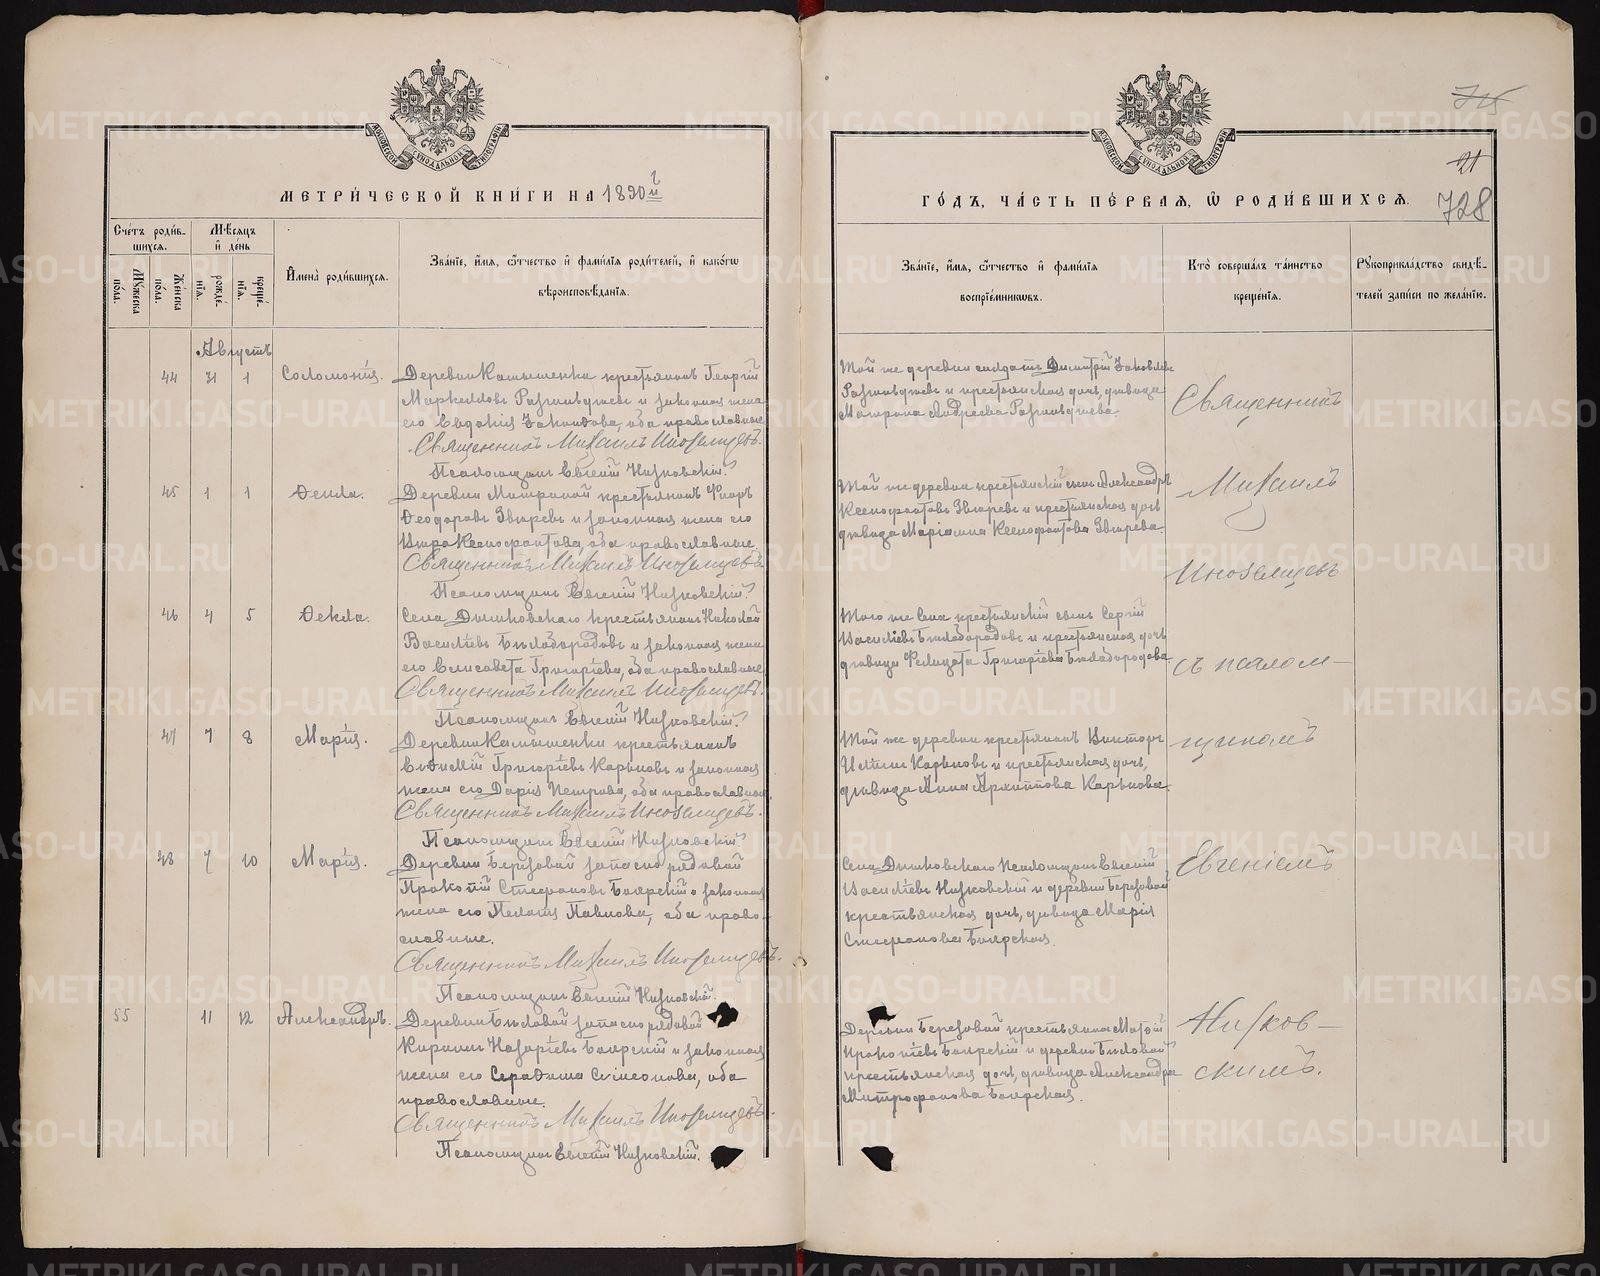 МЕТРИЧЕСКОЙ КНИГИ НА 1890й г
Счетъ родившихся.
Мужеска пола.
Женска пола.
Мѣсяцъ и день
рожденія.
крещенія.
Имена родившихся.
Званіе, имя, отчество и фамилія родителей, и какого вѣроисповѣданія.
Августъ
44 31 1 Соломонія.
Деревни Камышенки крестьянинъ Георгій
Маркеловъ и законная жена
его Евдокія, оба православные
Священникъ Михаилъ Иноземцевъ.
Псаломщикъ Евгеній Низковскій.
45 1 1 Ѳекла.
Деревни крестьянинъ Флоръ
Ѳеодоровъ Звѣревъ и законная жена его
Ксенофонтова, оба православные.
Священникъ Михаилъ Иноземцевъ.
Псаломщикъ Евгеній Низковскій.
46 4 5 Ѳекла.
Села Дымковскаго крестьянинъ Николай
Василіевъ Бѣлобородовъ и законная жена
его Елисавета Григоріева, оба православные
Священникъ Михаилъ Иноземцевъ.
Псаломщикъ Евгеній Низковскій.
47 7 8 Марія.
Деревни Камышенки крестьянинъ
Евѳимій Григоріевъ Карьковъ и законная
жена его Дарія Петрова, оба православные.
Священникъ Михаилъ Иноземцевъ.
Псаломщикъ Евгеній Низковскій.
48 7 10 Марія.
Деревни Березовой запасно рядовой
Прокопій Стефановъ Боярскій и законная
жена его Пелагія Павлова, оба право-
славные.
Священникъ Михаилъ Иноземцевъ.
Псаломщикъ Евгеній Низковскій.
55 11 12 Александръ.
Деревни Бѣловой запасно рядовой
Кириллъ Назаріевъ Боярскій и законная
жена его Серафима Симеонова, оба
православные.
Священникъ Михаилъ Иноземцевъ.
Псаломщикъ Евгеній Низковскій.
МОСКОВСКОЙ СѴНОДАЛЬНОЙ ТИПОГРАФІИ
715
21
728
ГОДЪ, ЧАСТЬ ПЕРВАЯ, Ѡ РОДИВШИХСЯ.
Званіе, имя, отчество и фамилія воспріемниковъ.
Кто совершалъ таинство крещенія.
Рукоприкладство свидѣтелей записи по желанію.
Той же деревни солдатъ Димитрій Іаковлевъ
и крестьянская дочь, дѣвица
Матрона Андреева
Той же деревни крестьянскій сынъ Александръ
Ксенофонтовъ Звѣревъ и крестьянская дочь
дѣвица Маріамна Ксенофонтова Звѣрева.
Того же Села крестьянскій сынъ Сергій
Василіевъ Бѣлобородовъ и крестьянская дочь
дѣвица Фелицата Григоріева Бѣлобородова.
Той же деревни крестьянинъ Викторъ
Карьковъ и крестьянская дочь,
дѣвица Анна Архиппова Карькова.
Села Дымковскаго Псаломщикъ Евгеній
Василіевъ Низковскій и деревни Березовой
крестьянская дочь, дѣвица Марія
Стефанова Боярская.
Деревни Березовой крестьянинъ
Прокопіевъ Боярскій и деревни Бѣловой
крестьянская дочь, дѣвица Александра
Митрофанова Боярская.
Священникъ
Михаилъ
Иноземцевъ
съ псалом-
щикомъ
Евгеніемъ
Низков-
скимъ.
METRIKI.GASO-URAL.RU